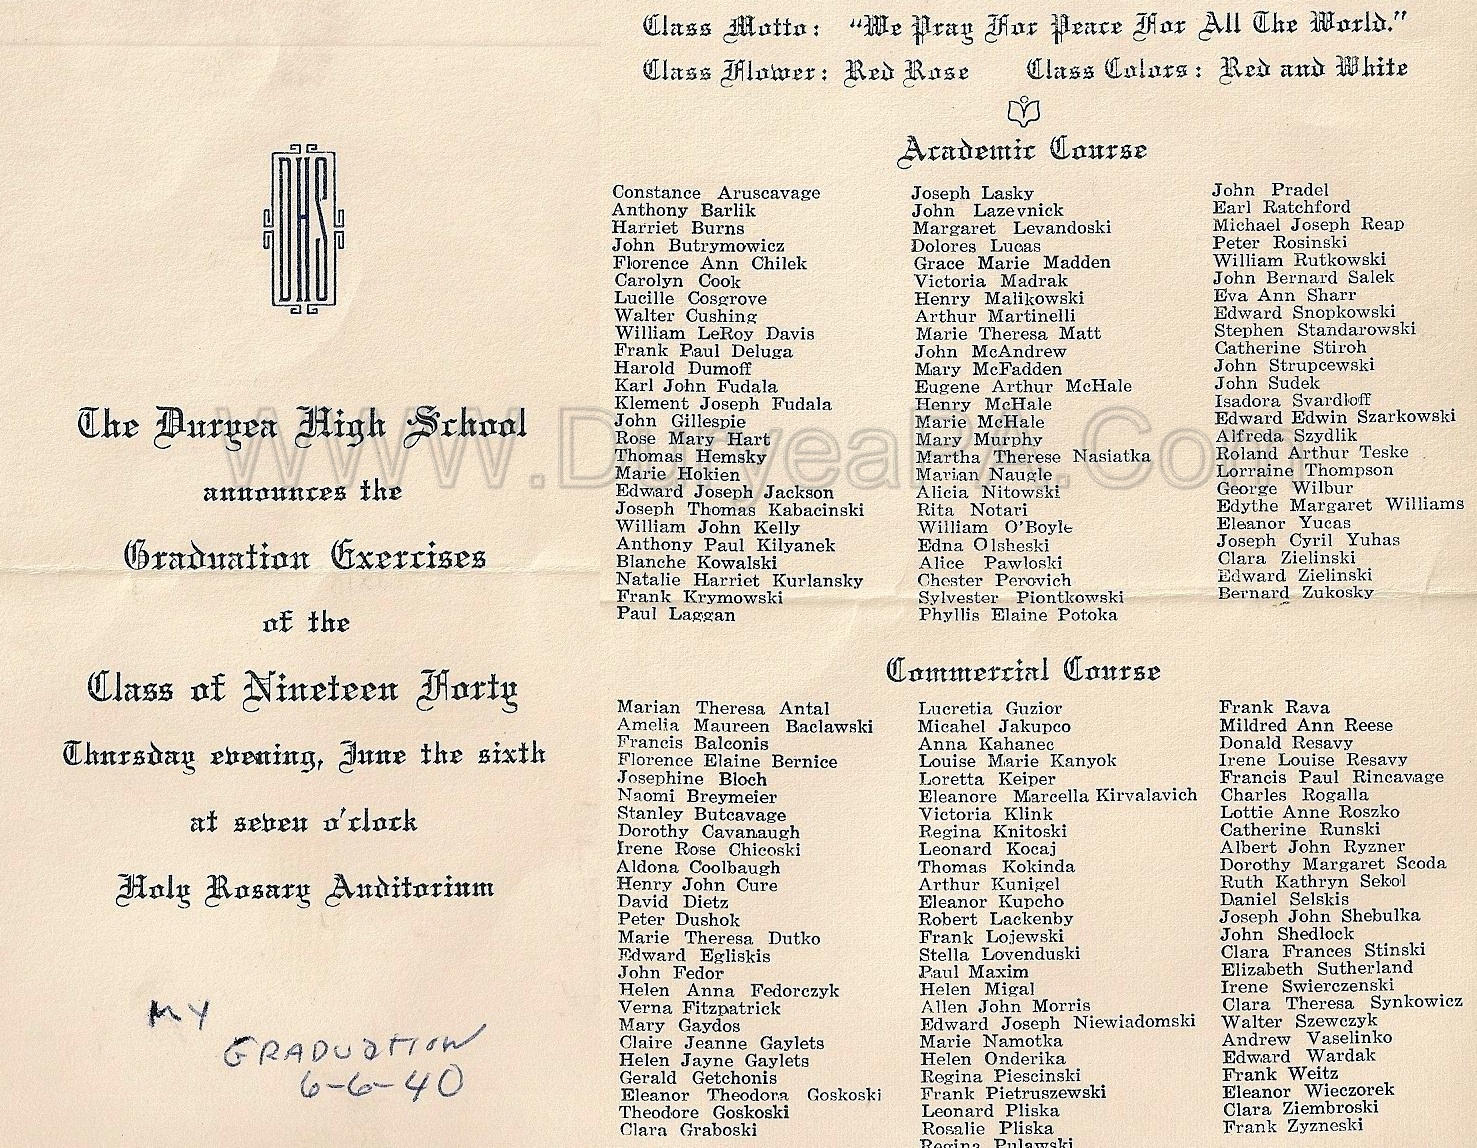 DHS
The Duryea High School
announces the
Graduation Exercises
of the
Class of Nineteen Forty
Thursday evening, June the sixth
at seven o'clock
Holy Rosary Auditorium
MY
GRADUATION
6-6-40
Class Motto: "We Pray For Peace For All The World."
Class Flower: Red Rose Class Colors: Red and White
Academic Course
Constance Aruscavage
Anthony Barlik
Harriet Burns
John Butrymowicz
Florence Ann Chilek
Carolyn Cook
Lucille Cosgrove
Walter Cushing
William LeRoy Davis
Frank Paul Deluga
Harold Dumoff
Karl John Fudala
Klement Joseph Fudala
John Gillespie
Rose Mary Hart
Thomas Hemsky
Marie Hokien
Edward Joseph Jackson
Joseph Thomas Kabacinski
William John Kelly
Anthony Paul Kilyanek
Blanche Kowalski
Natalie Harriet Kurlansky
Frank Krymowski
Paul Laggan
Joseph Lasky
John Lazevnick
Margaret Levandoski
Dolores Lucas
Grace Marie Madden
Victoria Madrak
Henry Malikowski
Arthur Martinelli
Marie Theresa Matt
John McAndrew
Mary McFadden
Eugene Arthur McHale
Henry McHale
Marie McHale
Mary Murphy
Martha Therese Nasiatka
Marian Naugle
Alicia Nitowski
Rita Notari
William O'Boyle
Edna Olsheski
Alice Pawloski
Chester Perovich
Sylvester Piontkowski
Phyllis Elaine Potoka
John Pradel
Earl Ratchford
Michael Joseph Reap
Peter Rosinski
William Rutkowski
John Bernard Salek
Eva Ann Sharr
Edward Snopkowski
Stephen Standarowski
Catherine Stiroh
John Strupcewski
John Sudek
Isadora Svardloff
Edward Edwin Szarkowski
Alfreda Szydlik
Roland Arthur Teske
Lorraine Thompson
George Wilbur
Edythe Margaret Williams
Eleanor Yucas
Joseph Cyril Yuhas
Clara Zielinski
Edward Zielinski
Bernard Zukosky
Commercial Course
Marian Theresa Antal
Amelia Maureen Baclawski
Francis Balconis
Florence Elaine Bernice
Josephine Bloch
Naomi Breymeier
Stanley Butcavage
Dorothy Cavanaugh
Irene Rose Chicoski
Aldona Coolbaugh
Henry John Cure
David Dietz
Peter Dushok
Marie Theresa Dutko
Edward Egliskis
John Fedor
Helen Anna Fedorczyk
Verna Fitzpatrick
Mary Gaydos
Claire Jeanne Gaylets
Helen Jayne Gaylets
Gerald Getchonis
Eleanor Theodora Goskoski
Theodore Goskoski
Clara Graboski
Lucretia Guzior
Micahel Jakupco
Anna Kahanec
Louise Marie Kanyok
Loretta Keiper
Eleanore Marcella Kirvalavich
Victoria Klink
Regina Knitoski
Leonard Kocaj
Thomas Kokinda
Arthur Kunigel
Eleanor Kupcho
Robert Lackenby
Frank Lojewski
Stella Lovenduski
Paul Maxim
Helen Migal
Allen John Morris
Edward Joseph Niewiadomski
Marie Namotka
Helen Onderika
Regina Piescinski
Frank Pietruszewski
Leonard Pliska
Rosalie Pliska
Regina Pulawski
Frank Rava
Mildred Ann Reese
Donald Resavy
Irene Louise Resavy
Francis Paul Rincavage
Charles Rogalla
Lottie Anne Roszko
Catherine Runski
Albert John Ryzner
Dorothy Margaret Scoda
Ruth Kathryn Sekol
Daniel Selskis
Joseph John Shebulka
John Shedlock
Clara Frances Stinski
Elizabeth Sutherland
Irene Swierczenski
Clara Theresa Synkowicz
Walter Szewczyk
Andrew Vaselinko
Edward Wardak
Frank Weitz
Eleanor Wieczorek
Clara Ziembroski
Frank Zyzneski
WWW.DuryeaPA.Com